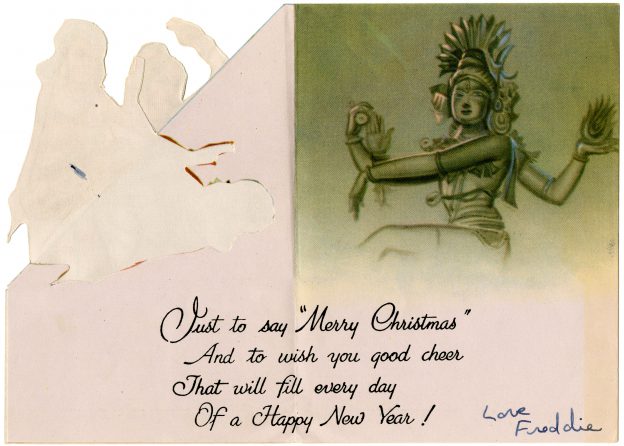 Just to say "Merry Christmas"
And to wish you good cheer
That will fill every day
Of a Happy New Year!
Love
Freddie